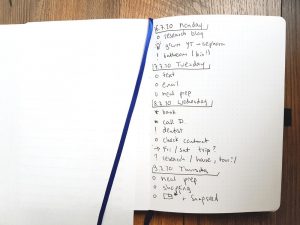 6.7.20 Monday
o research blog
grum YT → sephora
! bathroom (bin!)
7.7.20 Tuesday
o text
o email
o meal prep
8.7.20 Wednesday
* bank
* call D.
! dentist
o check contract
→ Fri / sat trip?
? research / house, tour?/
9.7.20 Thursday
o meal prep
o shopping
o + Snapseed